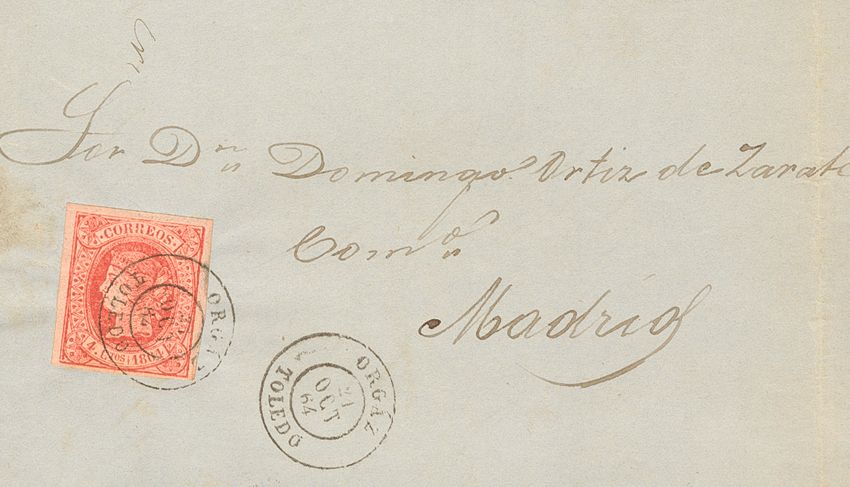 Sor Dn Domingo Ortiz de Zarate
Como
Madrid
CORREOS
4 CTOS 1864
ORGAZ
TOLEDO
ORGAZ
21
OCT
64
TOLEDO